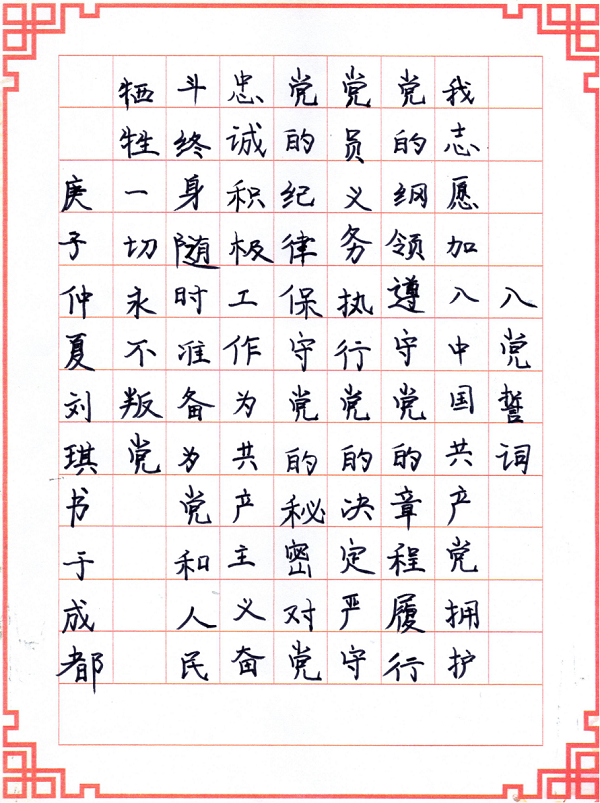 入党誓词
我志愿加入中国共产党拥护
党的纲领遵守党的章程履行
党员义务执行党的决定严守
党的纪律保守党的秘密对党
忠诚积极工作为共产主义奋
斗终身随时准备为党和人民
牺牲一切永不叛党
庚子仲夏刘琪书于成都